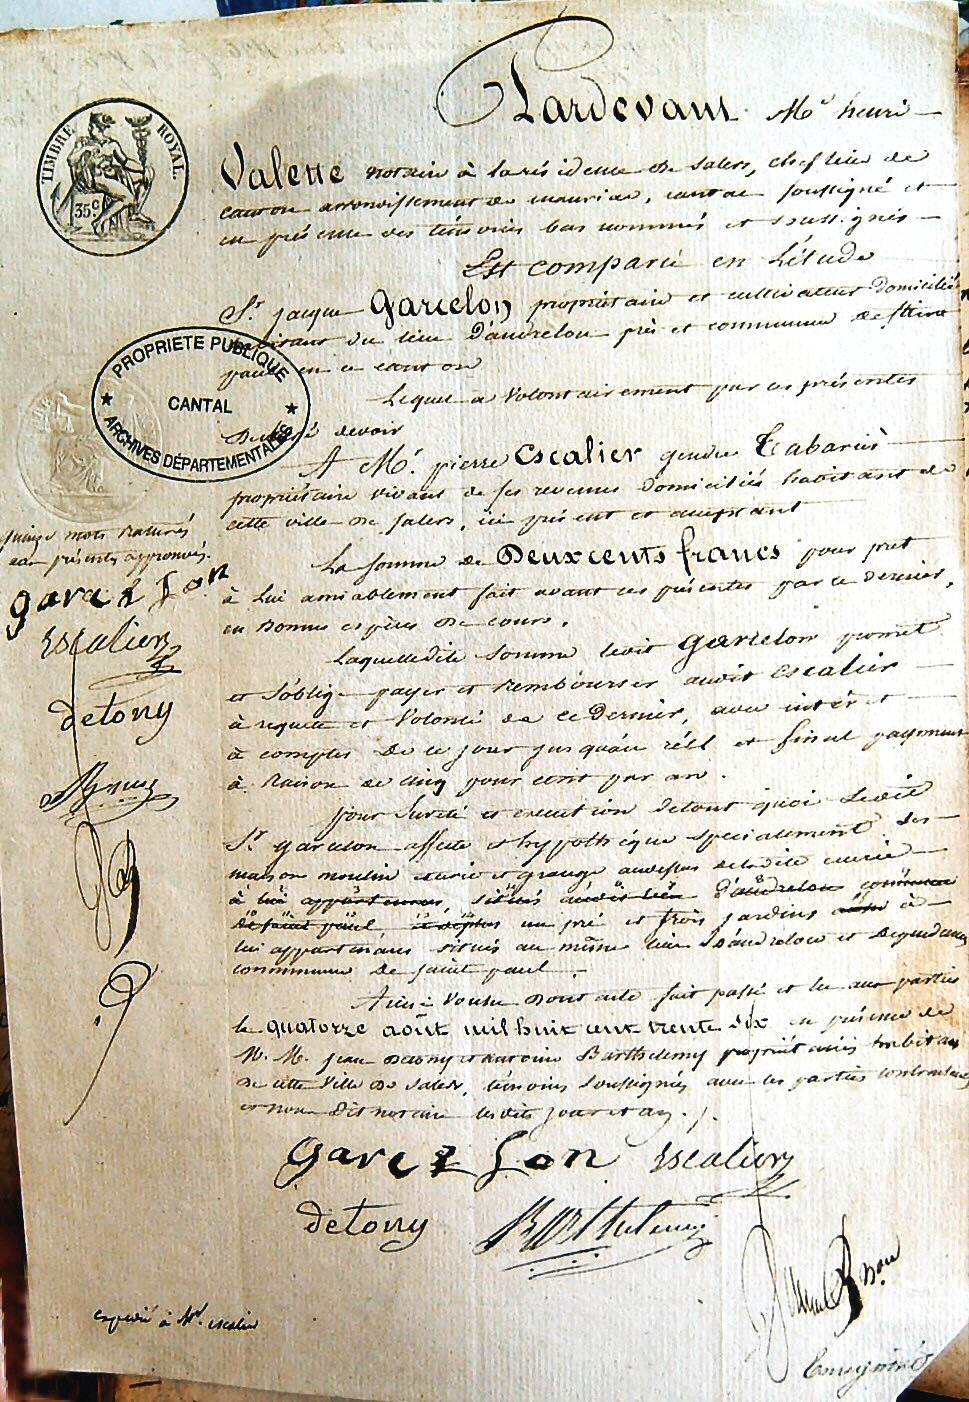 TIMBRE ROYAL.
35 c
Pardevant Me henri
Valette notaire à la résidence de Salers, chef lieu de
canton arrondissement de mauriac, cantal soussigné et
en présence des témoins bas nommés et soussignés
Est comparu en L'étude
Sr jacques Garcelon propriétaire et cultivateur domicilié
habitant du lieu D'audrelou près et commune de Saint
paul en ce canton
PROPRIETE PUBLIQUE
CANTAL
ARCHIVES DÉPARTEMENTALES
Lequel a Volontairement par ces présentes
Déclaré devoir
A Mr. pierre Escalier gendre Cabarus
propriétaire vivant de ses revenus domicilié habitant de
cette ville de Salers, ici présent et acceptant
La somme de Deux cents francs pour prêt
à Lui amiablement fait avant ces présentes par ce dernier,
en Bonnes espèces de cours.
Laquelle dite somme ledit Garcelon promet
et s'oblige payer et Rembourser audit Escalier
à requete et Volonté de ce Dernier, avec intéret
à compter de ce jour jusqu'au réel et final payement
à Raison de cinq pour cent par an.
pour Sureté et execution de tout quoi Ledit
Sr. garcelon affecte et hypothèque specialement des
maison moulin écurie et grange audessus de ladite écurie
à lui appartenans, situés audit lieu d'audrelou commune
de saint paul, un pré et trois jardins à
lui appartenans situés au même lieu D'audrelou et dependances
commune de saint paul
Dont acte fait passé et lu aux parties
le quatorze août mil huit cent trente six en présence de
M. M. jean Detony et antoine Barthelemy propriétaires habitans
de cette Ville de Salers, témoins soussignés avec les parties contractantes
et nous dit notaire lesdits jour et an.
quinze mots Raturés
aux présentes approuvés.
garcelon
Escalier
detony
garcelon Escalier
detony Barthelemy
expedié à Mr. escalier
Enregistré